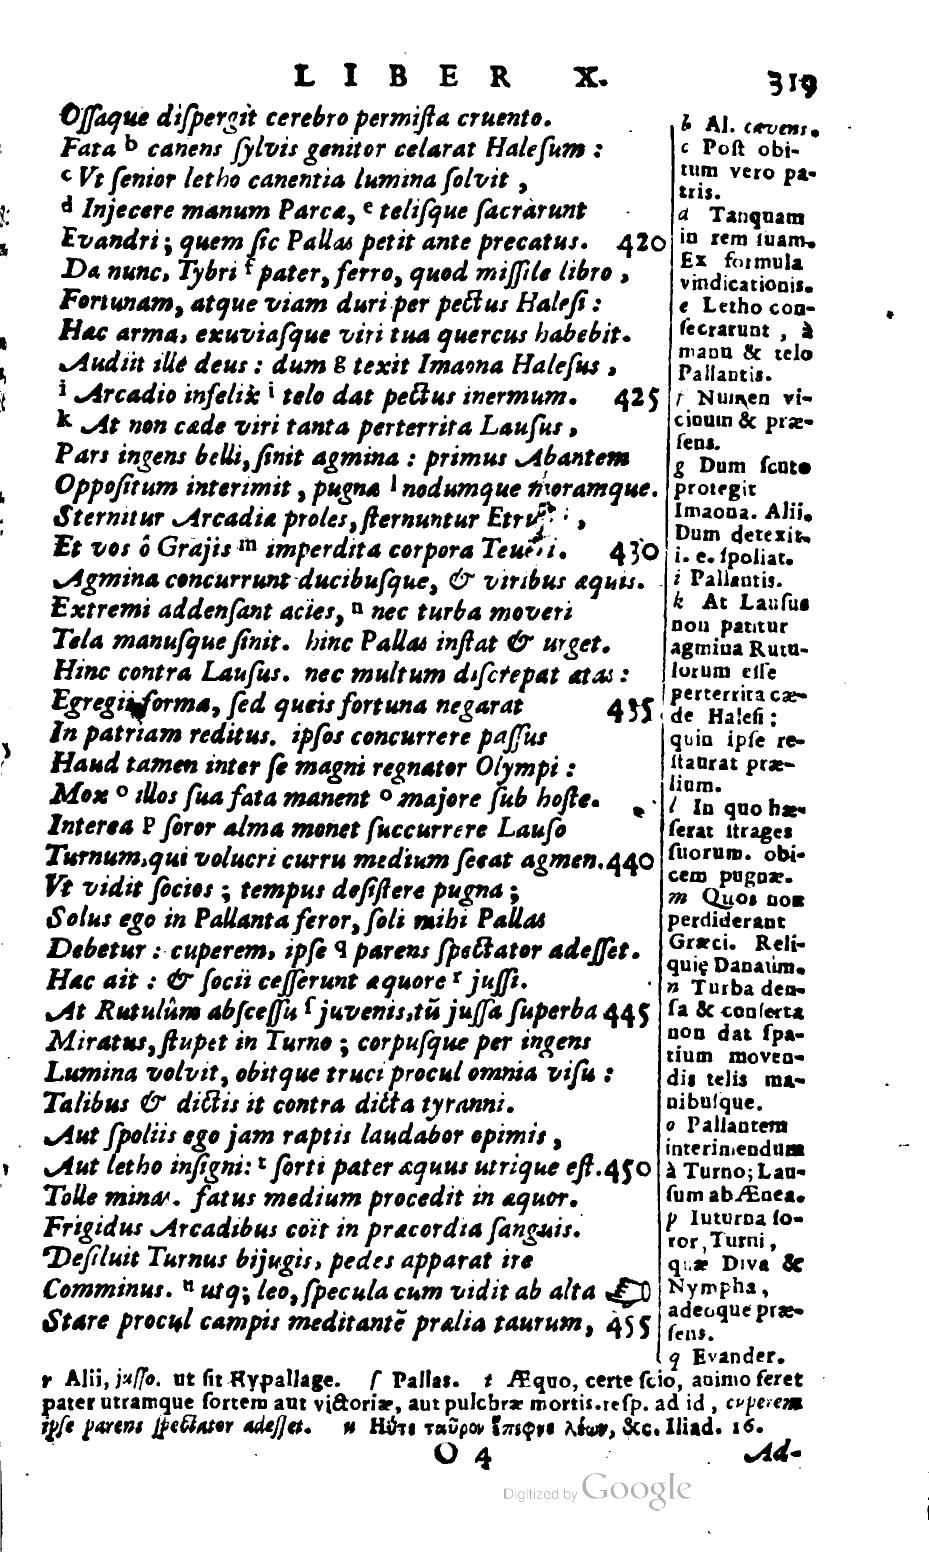 LIBER X. 319
Oſſaque diſpergit cerebro permiſta cruento.
Fata b canens ſylvis genitor celarat Haleſum :
c Vt ſenior letho canentia lumina ſolvit ,
d Injecere manum Parcæ, e teliſque ſacrârunt
Evandri ; quem ſic Pallas petit ante precatus. 420
Da nunc, Tybri f pater, ferro, quod miſſile libro ,
Fortunam, atque viam duri per pectus Haleſi :
Hæc arma, exuviaſque viri tua quercus habebit.
Audiit ille deus : dum g texit Imaona Haleſus ,
i Arcadio infelix i telo dat pectus inermum. 425
k At non cæde viri tanta perterrita Lauſus ,
Pars ingens belli, ſinit agmina : primus Abantem
Oppoſitum interimit , pugnæ l nodumque moramque.
Sternitur Arcadiæ proles, ſternuntur ,
Et vos ô Grajis m imperdita corpora Teucri. 430
Agmina concurrunt ducibuſque, & viribus æquis.
Extremi addenſant acies, n nec turba moveri
Tela manuſque ſinit. hinc Pallas inſtat & urget.
Hinc contra Lauſus. nec multum diſcrepat ætas :
Egregii forma, ſed queis fortuna negarat 435
In patriam reditus. ipſos concurrere paſſus
Haud tamen inter ſe magni regnator Olympi :
Mox o illos ſua fata manent o majore ſub hoſte.
Interea p ſoror alma monet ſuccurrere Lauſo
Turnum, qui volucri curru medium ſecat agmen. 440
Vt vidit ſocios ; tempus deſiſtere pugnæ ;
Solus ego in Pallanta feror, ſoli mihi Pallas
Debetur : cuperem, ipſe q parens ſpectator adeſſet.
Hæc ait : & ſocii ceſſerunt æquore r juſſi.
At Rutulûm abſceſſu ſ juvenis, tū juſſa ſuperba 445
Miratus, ſtupet in Turno ; corpuſque per ingens
Lumina volvit, obitque truci procul omnia viſu :
Talibus & dictis it contra dicta tyranni.
Aut ſpoliis ego jam raptis laudabor opimis ,
Aut letho inſigni: t ſorti pater æquus utrique eſt. 450
Tolle minas. fatus medium procedit in æquor.
Frigidus Arcadibus coït in præcordia ſanguis.
Deſiluit Turnus bijugis, pedes apparat ire
Comminus. u utq; leo, ſpecula cum vidit ab alta
Stare procul campis meditantē prælia taurum, 455
b Al. cavens.
c Poſt obi-
tum vero pa-
tris.
d Tanquam
in rem ſuam.
Ex formula
vindicationis.
e Letho con-
ſecrarunt , à
manu & telo
Pallantis.
f Numen vi-
cinum & præ-
ſens.
g Dum ſcuto
protegit
Imaona. Alii.
Dum detexit.
i. e. ſpoliat.
i Pallantis.
k At Lauſus
non patitur
agmina Rutu-
lorum eſſe
perterrita cæ-
de Haleſi ;
quin ipſe re-
ſtaurat præ-
lium.
l In quo hæ-
ſerat ſtrages
ſuorum. obi-
cem pugnæ.
m Quos non
perdiderant
Græci. Reli-
quię Danaûm.
n Turba den-
ſa & conſerta
non dat ſpa-
tium moven-
dis telis ma-
nibuſque.
o Pallantem
interimendum
à Turno; Lau-
ſum ab Ænea.
p Iuturna ſo-
ror, Turni ,
quæ Diva &
Nympha ,
adeoque præ-
ſens.
q Evander.
r Alii, juſſo. ut ſit Hypallage. ſ Pallas. t Æquo, certe ſcio, animo feret
pater utramque ſortem aut victoriæ, aut pulchræ mortis. reſp. ad id , cuperem
ipſe parens ſpectator adeſſet. u Ηὔτε ταῦρον ἔπεφνε λέων, &c. Iliad. 16.
O 4 Ad-
Digitized by Google